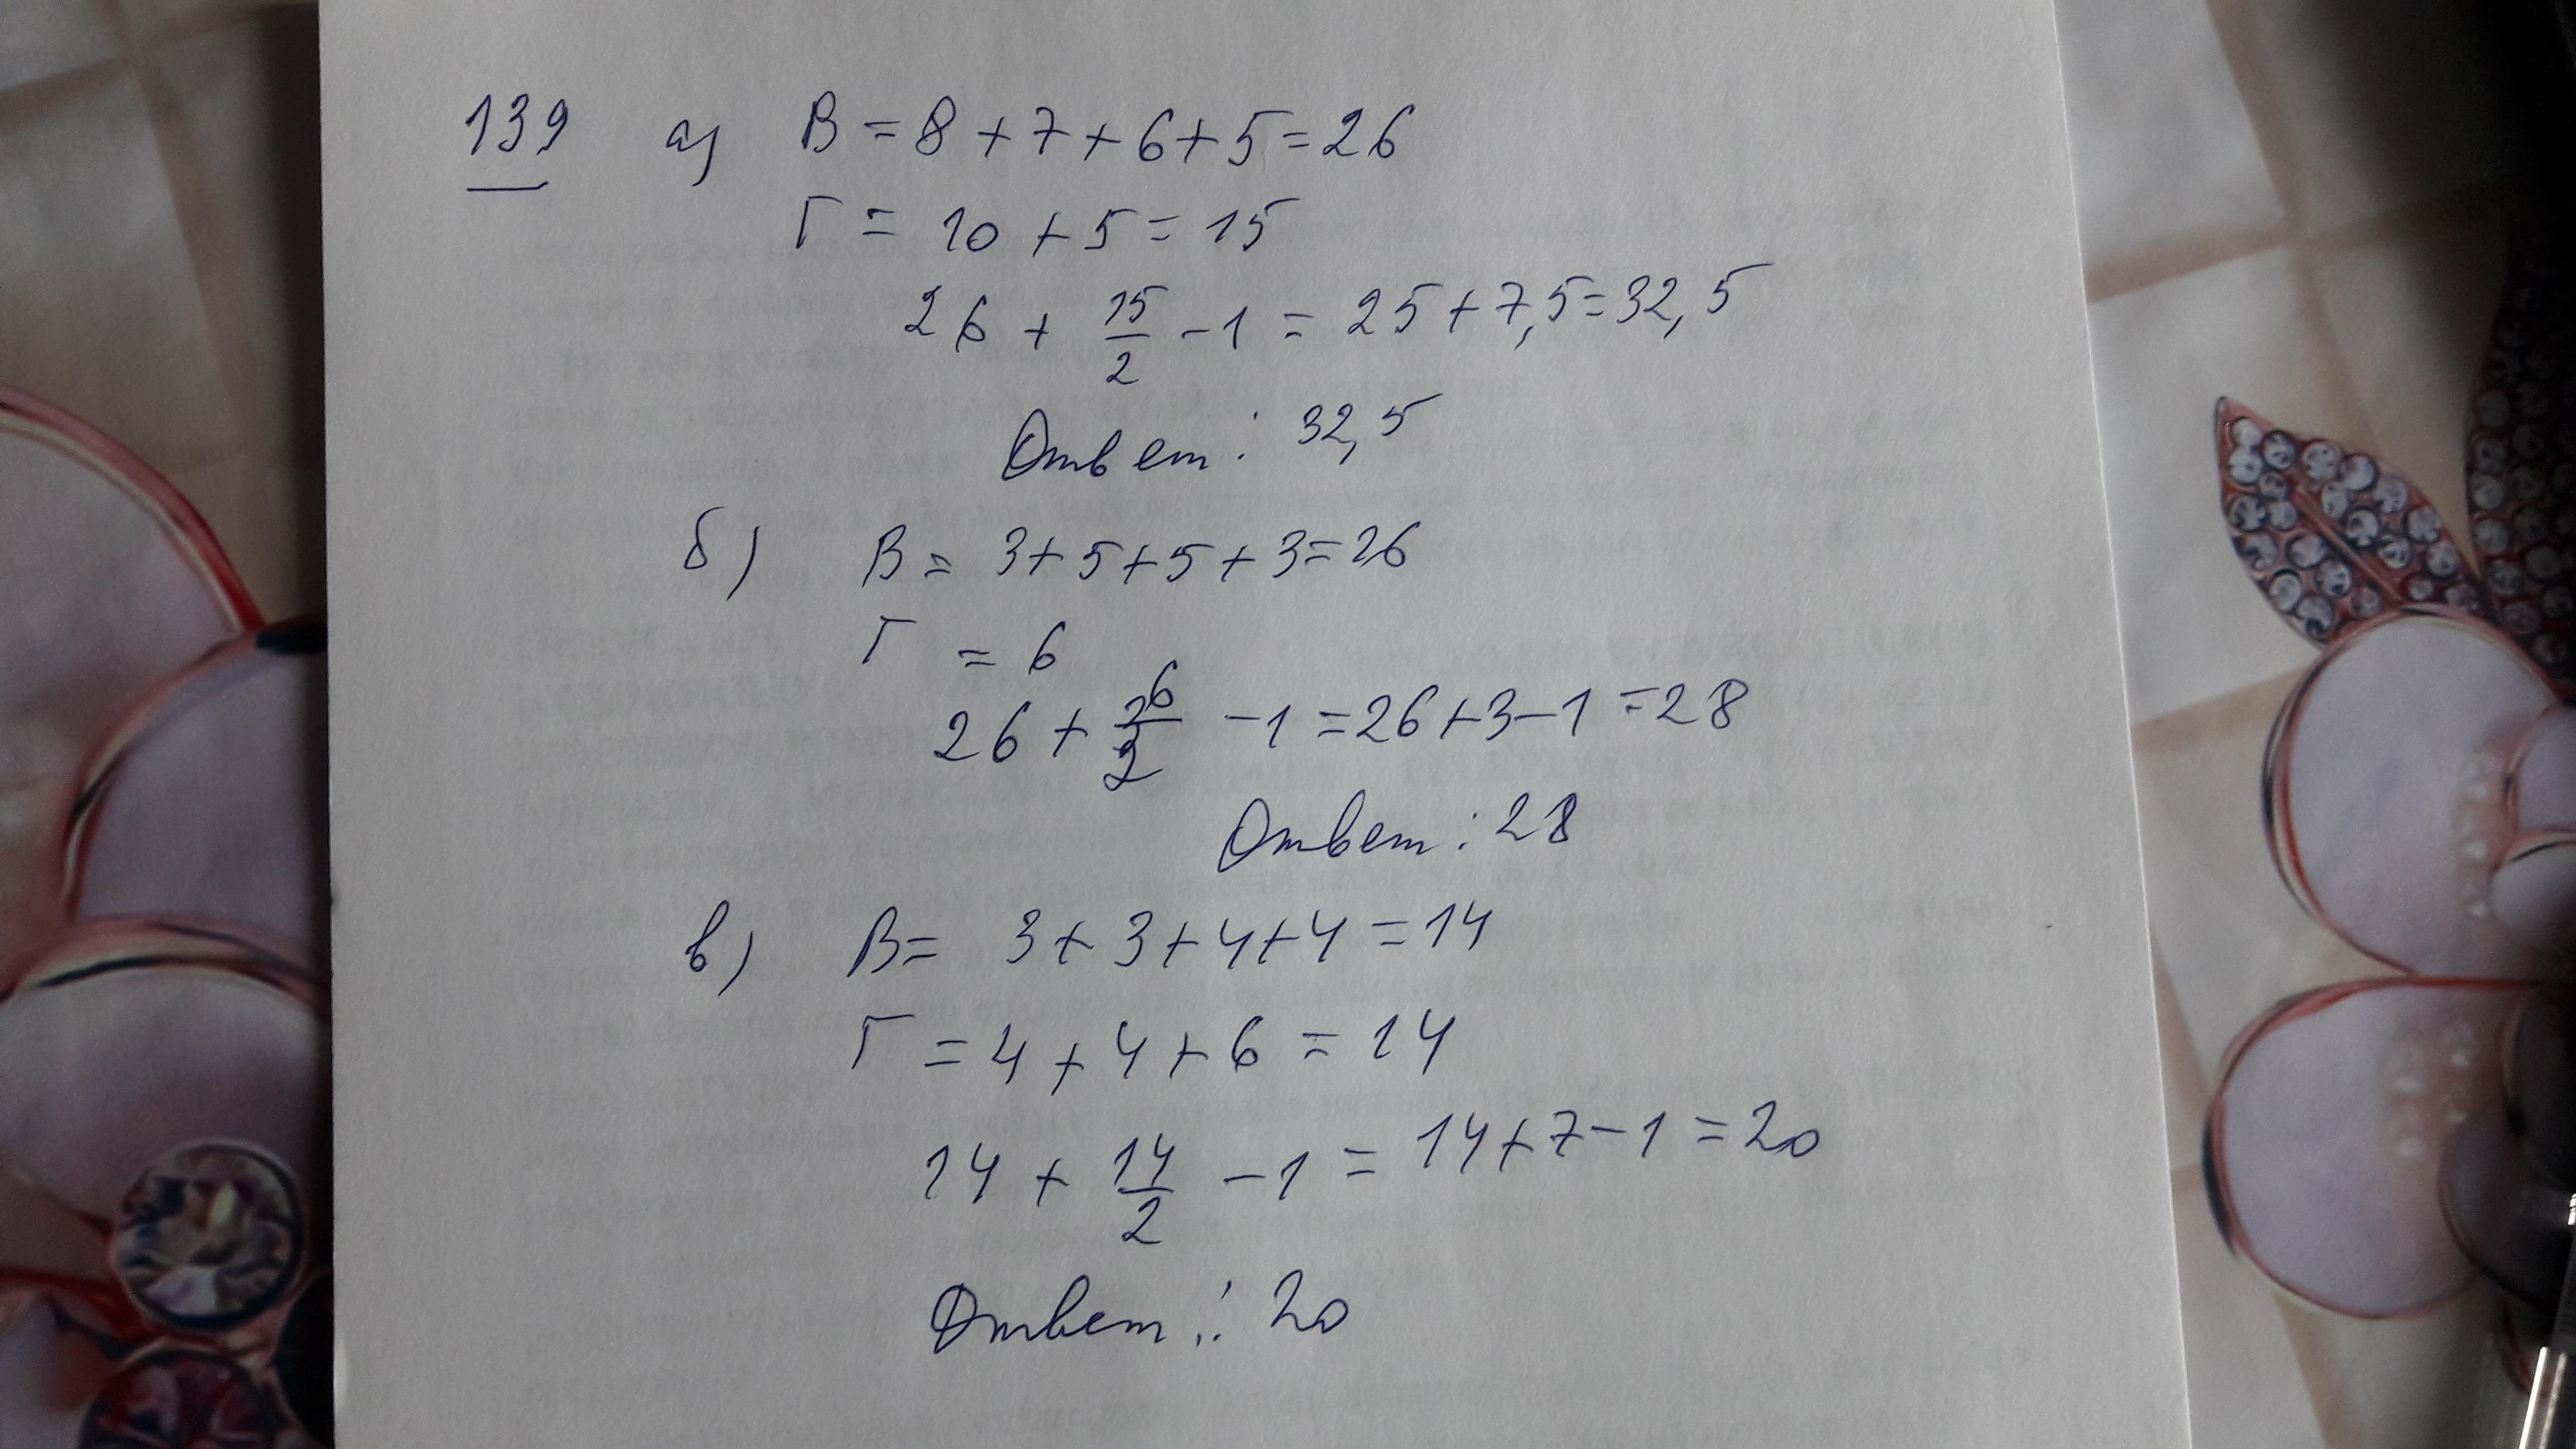 139 а) В = 8 + 7 + 6 + 5 = 26
Г = 10 + 5 = 15
26 + 15/2 - 1 = 25 + 7,5 = 32,5
Ответ: 32,5
б) В = 3 + 5 + 5 + 3 = 26
Г = 6
26 + 6/2 - 1 = 26 + 3 - 1 = 28
Ответ: 28
в) В = 3 + 3 + 4 + 4 = 14
Г = 4 + 4 + 6 = 14
14 + 14/2 - 1 = 14 + 7 - 1 = 20
Ответ: 20